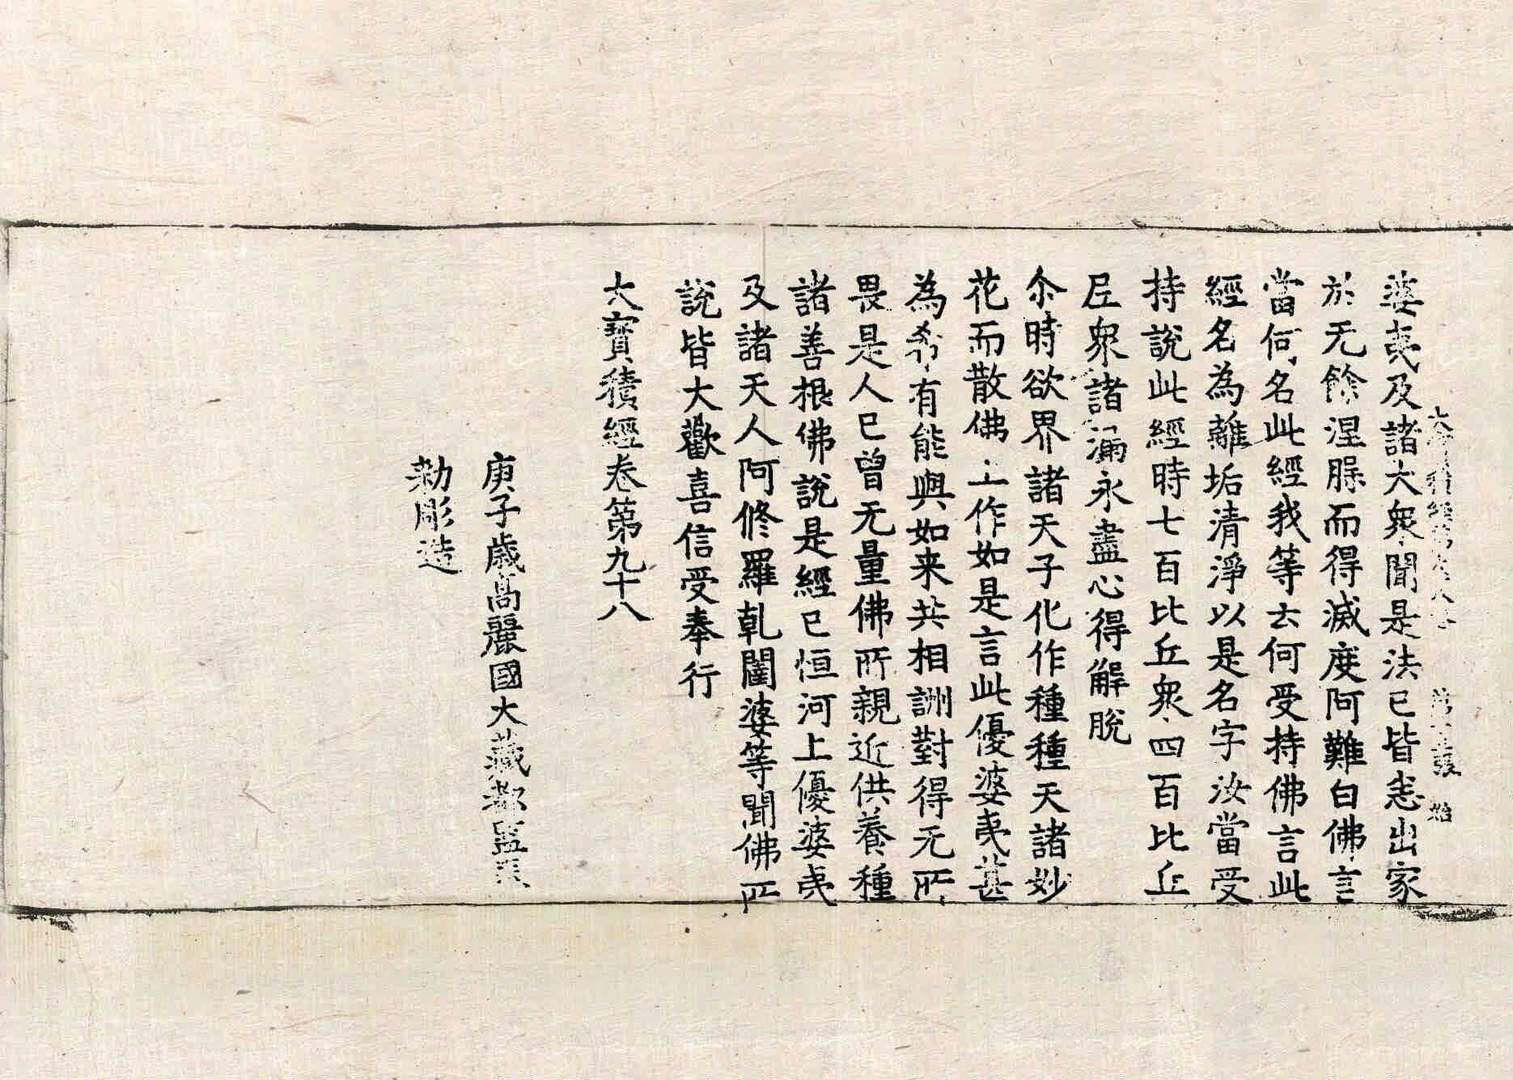 婆夷及諸大衆聞是法已皆悉出家
於无餘涅脲而得滅度阿難白佛言
當何名此經我等云何受持佛言此
經名為離垢清淨以是名字汝當受
持說此經時七百比丘衆四百比丘
尼衆諸漏永盡心得解脫
尒時欲界諸天子化作種種天諸妙
花而散佛上作如是言此優婆夷甚
為希有能與如来共相詶對得无所
畏是人已曾无量佛所親近供養種
諸善根佛說是經已恒河上優婆夷
及諸天人阿修羅乹闥婆等聞佛所
說皆大歡喜信受奉行
大寶積經卷第九十八
庚子歳高麗國大藏都監奉
勑彫造